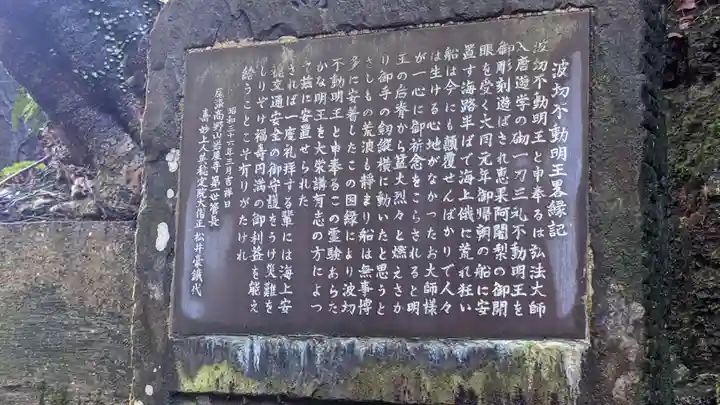 波切不動明王畧縁記
波切不動明王と申奉るは弘法大師
入唐遊学の砌一刀三礼不動明王を
御彫刻遊ばされ恵果阿闍梨の御開
眼を受く大同元年御帰朝の船に安
置す海路半ばで海上俄に荒れ狂い
船は今にも顚覆せんばかりで人々
は生ける心地がなかったお大師様
が一心に御祈念をこらされると明
王の后脊から萓大烈々と燃えさか
り御手の剱縦横に動いたと思うと
さしもの荒浪も静まり船は無事博
多に安着したこの因縁により波切
不動明王と申奉るこの霊験あらた
かな明王を大栄講有志の方によつ
て玆に安置せられた
されば一度礼拝する輩には海上安
祗交通安全の御守護をうけ災難を
しりぞけ福寿円満の御利益を能え
給うことこそ有りがたけれ
昭和三十六年三月吉祥日
尾張高野山岩屋寺第一世管長
喜妙上人井稳定院大僧正 松井豪鐵代